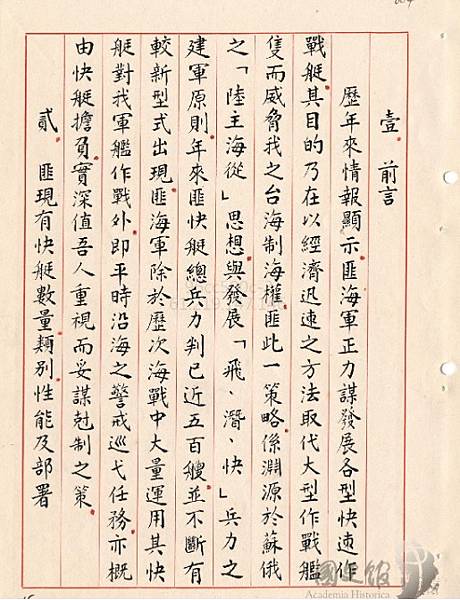 壹 前言
歷年來情報顯示匪海軍正力謀發展各型快速作
戰艇其目的乃在以經濟迅速之方法取代大型作戰艦
隻而威脅我之台海制海權匪此一策略係淵源於蘇俄
之「陸主海從」思想與發展「飛、潛、快」兵力之
建軍原則年來匪快艇總兵力判已近五百艘並不斷有
較新型式出現匪海軍除於歷次海戰中大量運用其快
艇對我軍艦作戰外即平時沿海之警戒巡弋任務亦概
由快艇擔負實深值吾人重視而妥謀尅制之策
貳 匪現有快艇數量類別性能及部署
Academia Historica